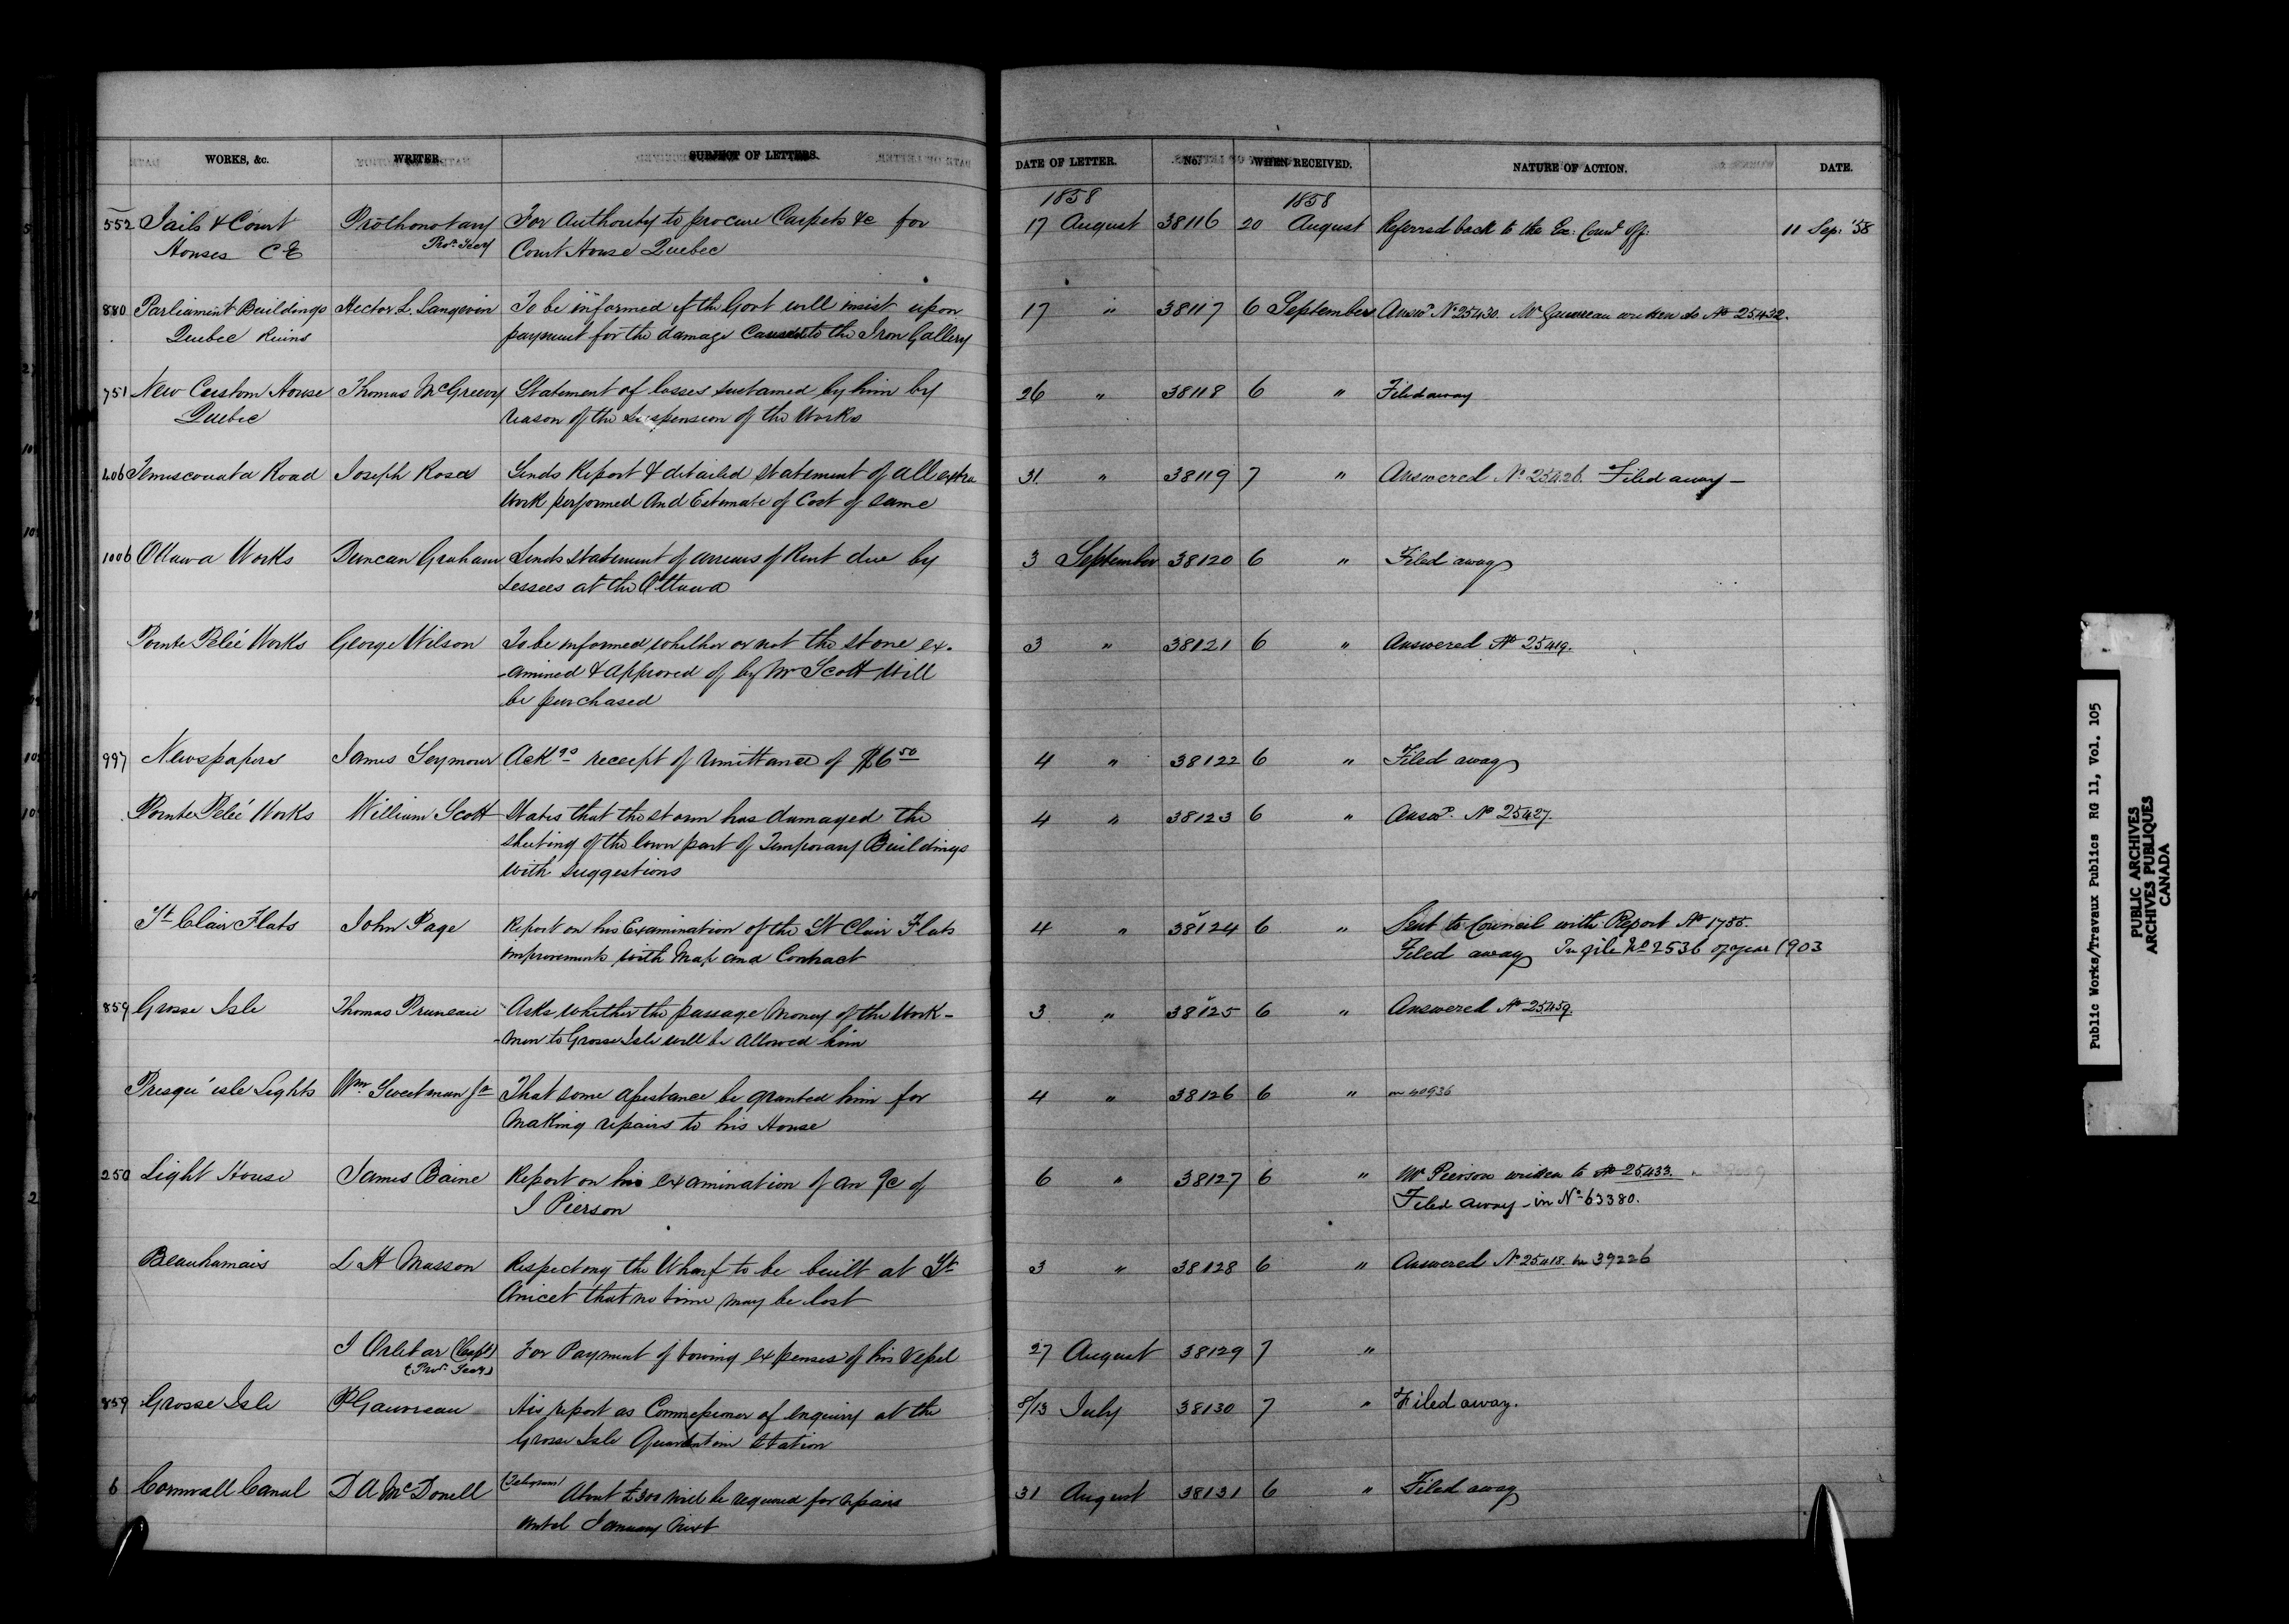 WORKS, &c. WRITER. SUBJECT OF LETTERS. DATE OF LETTER. No. WHEN RECEIVED. NATURE OF ACTION. DATE.
1858 1858
552 Jails & Court Prothonotary For Authority to procure Carpets &c for 17 August 38116 20 August Referred back to the Ex: Coun^l Off: 11 Sep: '58
Houses C E Prov. Secy Court House Quebec
880 Parliament Buildings Hector L. Langevin To be informed if the Govt will insist upon 17 " 38117 6 September Answ^d N° 25430. Mr Gauvreau written to No 25432.
Quebec Ruins payment for the damage Caused to the Iron Gallery
751 New Custom House Thomas McGreevy Statement of losses sustained by him by 26 " 38118 6 " Filed away
Quebec reason of the Suspension of the Works
406 Temiscouata Road Joseph Rosa Sends Report & detailed statement of all extra 31 " 38119 7 " Answered N° 25426. Filed away —
Work performed And Estimate of Cost of same
1006 Ottawa Works Duncan Graham Sends statement of arrears of Rent due by 3 September 38120 6 " Filed away
Lessees at the Ottawa
Pointe Pelée Works George Wilson To be informed whether or not the stone ex- 3 " 38121 6 " Answered No 25419.
-amined & approved of by Mr Scott Will
be purchased
997 Newspapers James Seymour Ack^gs receipt of remittance of $6 50 4 " 38122 6 " Filed away
Pointe Pelée Works William Scott States that the storm has damaged the 4 " 38123 6 " Answ^d. No 25427.
sheeting of the lower part of Temporary Buildings
with suggestions
St Clair Flats John Page Report on his Examination of the St Clair Flats 4 " 38124 6 " Sent to Council with Report No 1755.
improvements with Map and Contract Filed away In file No 2536 of year 1903
859 Grosse Isle Thomas Pruneau Asks whether the passage Money of the Work- 3 " 38125 6 " Answered No 25459.
-men to Grosse Isle will be allowed him
Presqu'isle Lights Wm. Sweetman Jr That some assistance be granted him for 4 " 38126 6 " on 40936
Making repairs to his House
250 Light House James Baine Report on his examination of an %c of 6 " 38127 6 " Mr Pierson written to No 25433.
J Pierson Filed away - in N° 63380.
Beauharnais L H Masson Respecting the Wharf to be built at St 3 " 38128 6 " Answered N° 25418. in 39226
Anicet that no time may be lost
J Orlebar (Capt) For Payment of towing expenses of his Vessel 27 August 38129 7 "
(Prov. Secy)
859 Grosse Isle P Gauvreau His report as Commissioner of enquiry at the 8/13 July 38130 7 " Filed away.
Grosse Isle Quarantine Station
6 Cornwall Canal D A McDonell (Telegram) About £300 will be required for repairs 31 August 38131 6 " Filed away
until January Next
Public Works/Travaux Publics RG 11, Vol. 105
PUBLIC ARCHIVES
ARCHIVES PUBLIQUES
CANADA